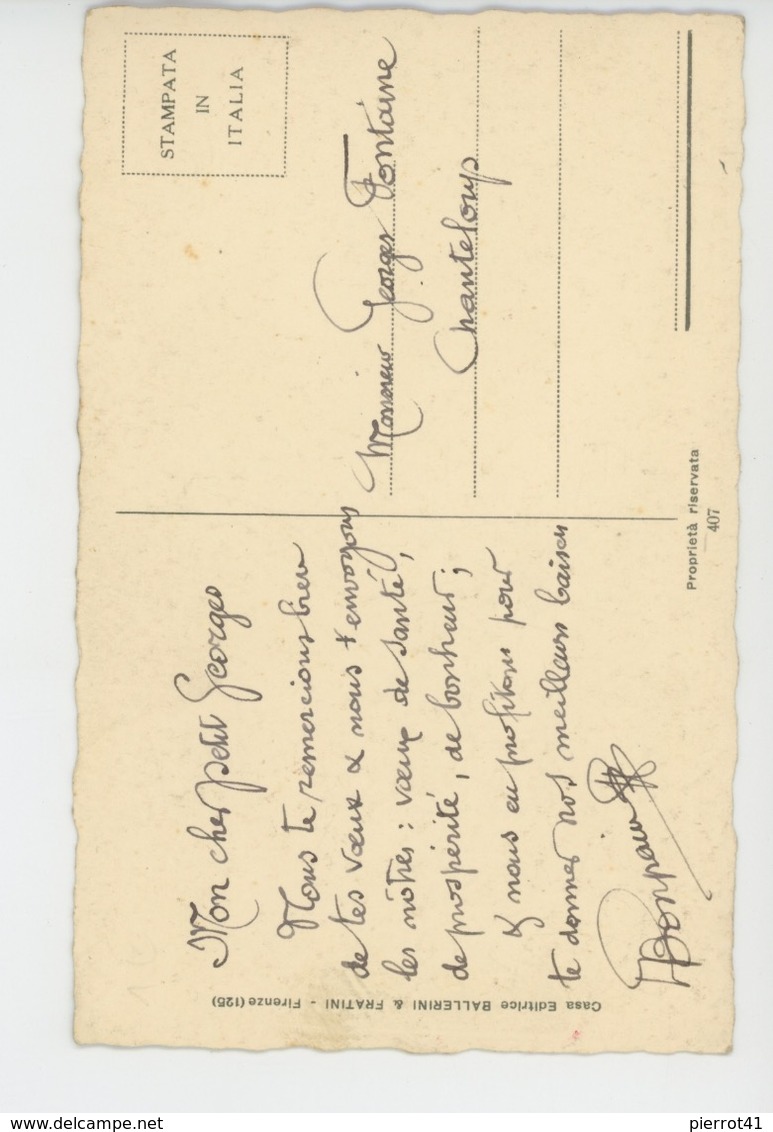 Mon cher petit Georges
Nous te remercions bien
de tes vœux & nous t'envoyons
les nôtres : vœux de santé,
de prospérité, de bonheur ;
& nous en profitons pour
te donner nos meilleurs baisers
STAMPATA
IN
ITALIA
Monsieur Georges Fontaine
Chanteloup
Proprietà riservata
407
Casa Editrice BALLERINI & FRATINI - Firenze (125)
delcampe.net
pierrot41